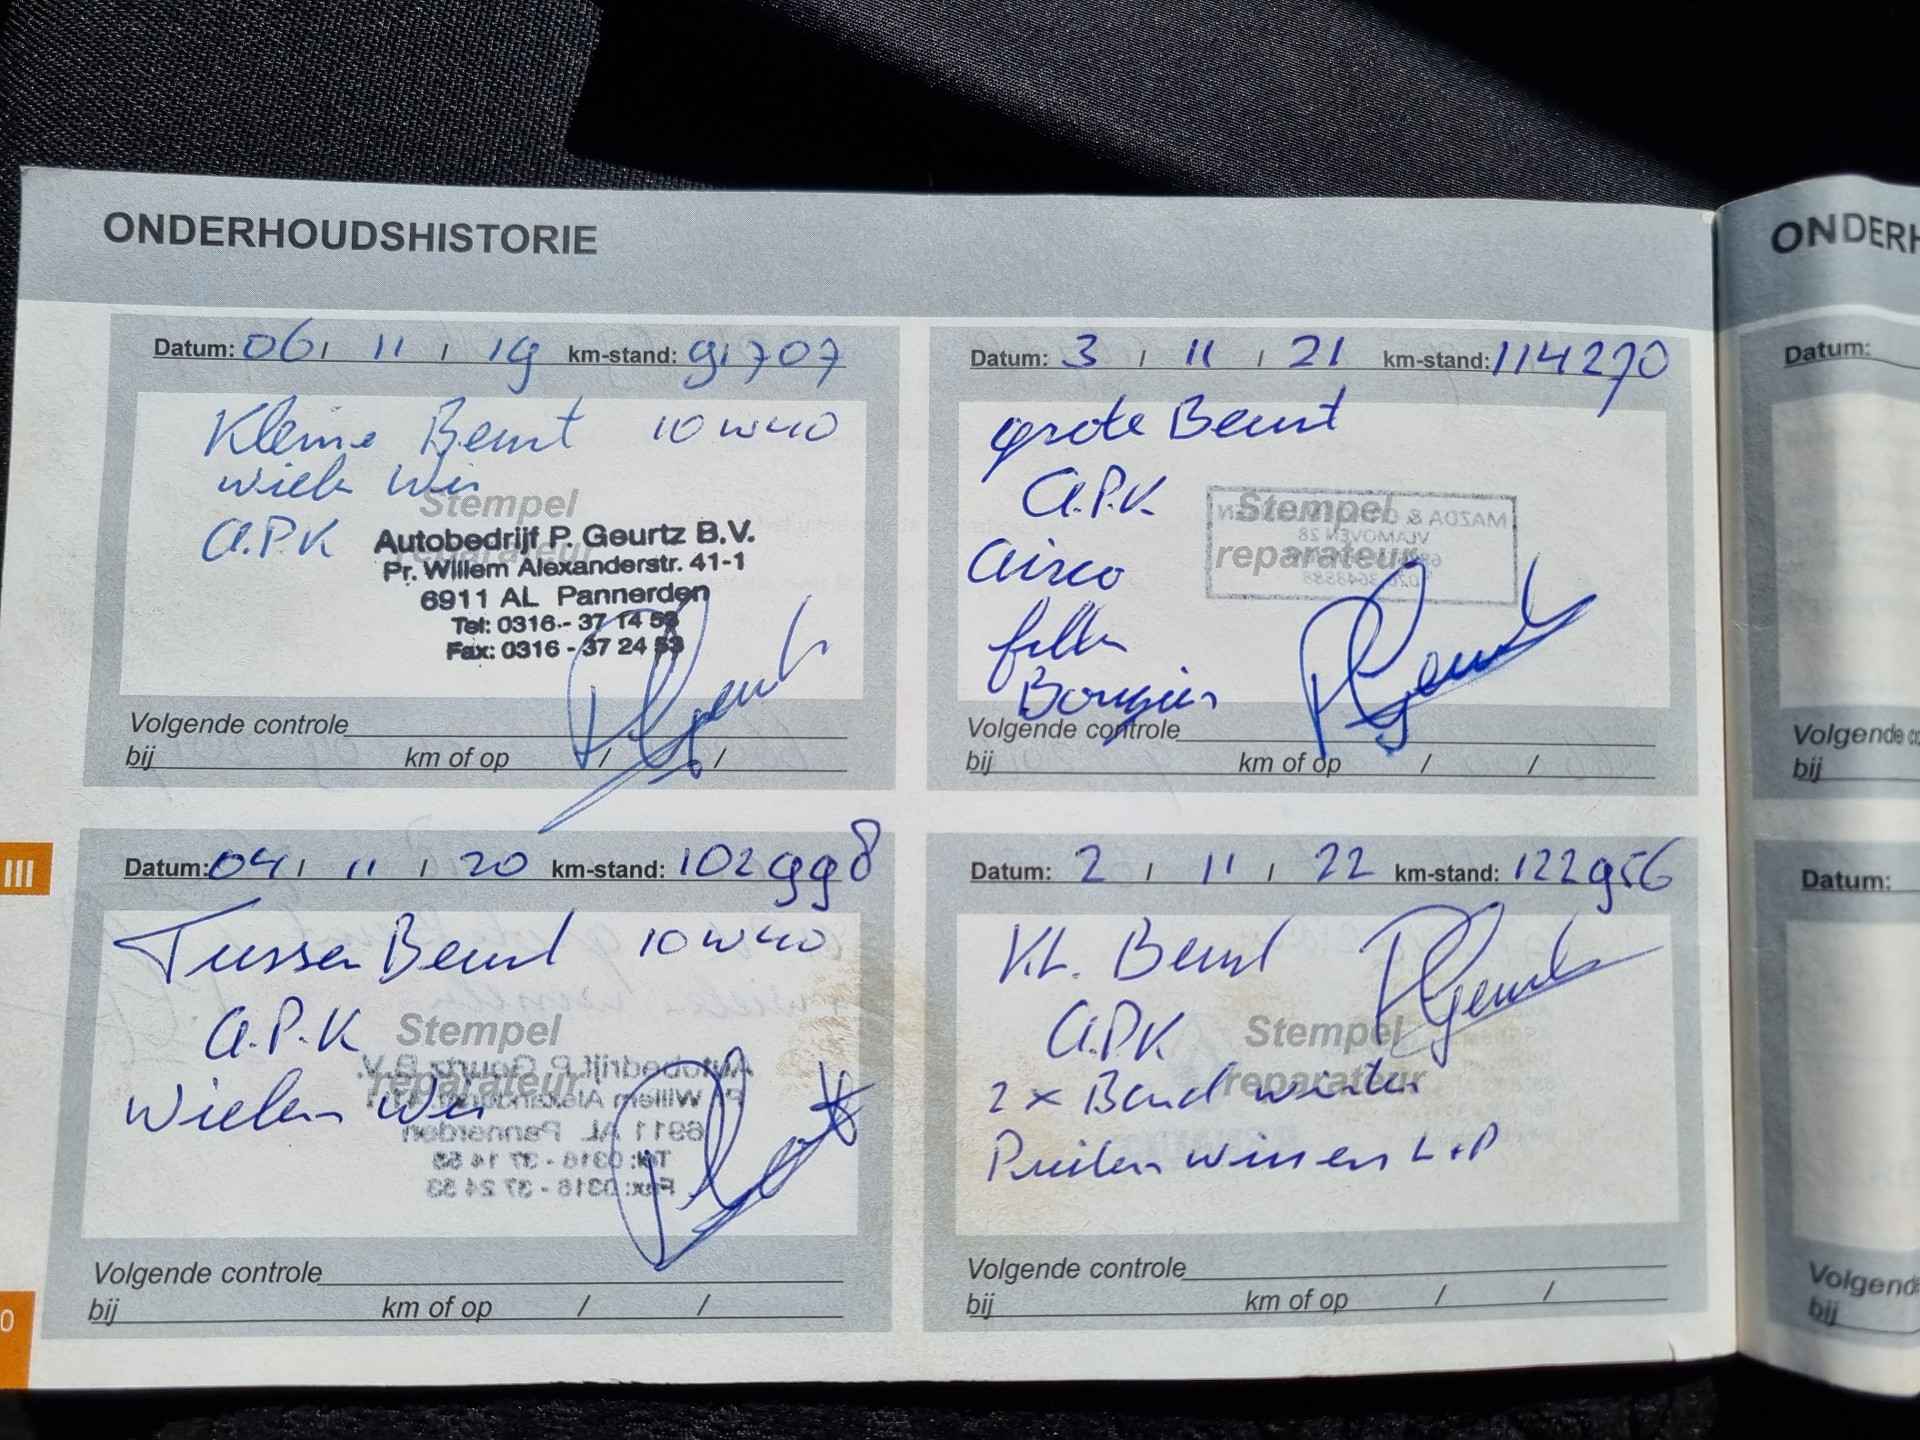 ONDERHOUDSHISTORIE
Datum: 06 / 11 / 19 km-stand: 91707
Kleine Beurt 10W40
wiel
A.P.K
Stempel
reparateur
Autobedrijf P. Geurtz B.V.
Pr. Willem Alexanderstr. 41-1
6911 AL Pannerden
Tel: 0316 - 37 14 53
Fax: 0316 - 37 24 53
Volgende controle
bij km of op / /
Datum: 04 / 11 / 20 km-stand: 102998
Tussen Beurt 10W40
A.P.K
Stempel
reparateur
Wielen
Autobedrijf P. Geurtz B.V.
Pr. Willem Alexanderstr. 41-1
6911 AL Pannerden
Tel: 0316 - 37 14 53
Fax: 0316 - 37 24 53
Volgende controle
bij km of op / /
Datum: 3 / 11 / 21 km-stand: 114270
grote Beurt
A.P.K
Stempel
reparateur
MAZDA &
VLAMOVEN 28
Airco
filter
Bougies
Volgende controle
bij km of op / /
Datum: 2 / 11 / 22 km-stand: 122956
KL. Beurt
A.P.K
Stempel
reparateur
2 x Band winter
Wissers L+P
Volgende controle
bij km of op / /
III
0
ONDERH
Datum:
Volgende co
bij
Datum:
Volgende
bij